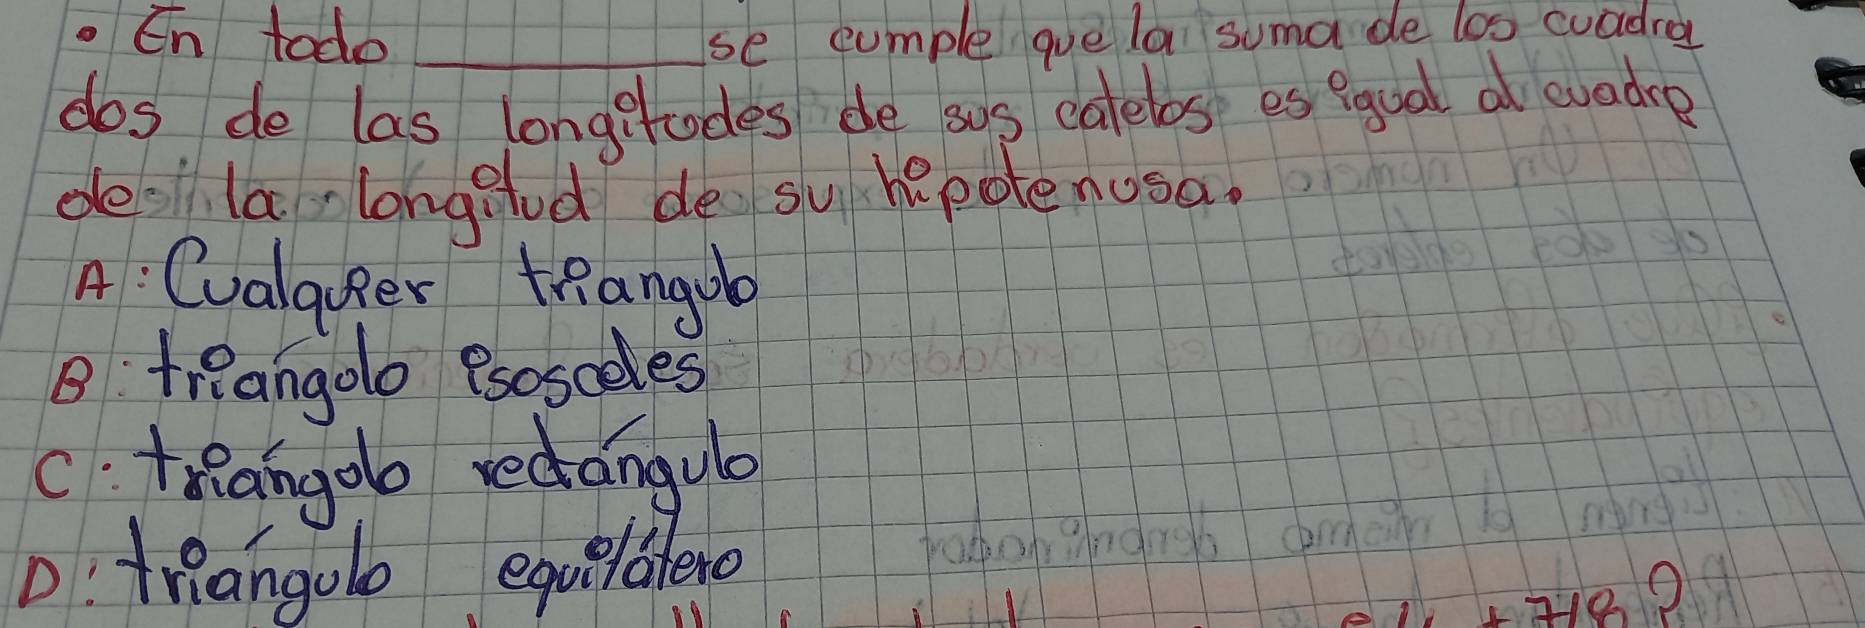 • En todo ________ se cumple que la suma de los cuadra
dos de las longitudes de sus catetos es igual al cuadro
de la longitud de su hipotenusa.
A: Cualquier triangulo
B: triángolo isosceles
C: triángolo rectángulo
D: triángulo equilátero
+ 7/8?